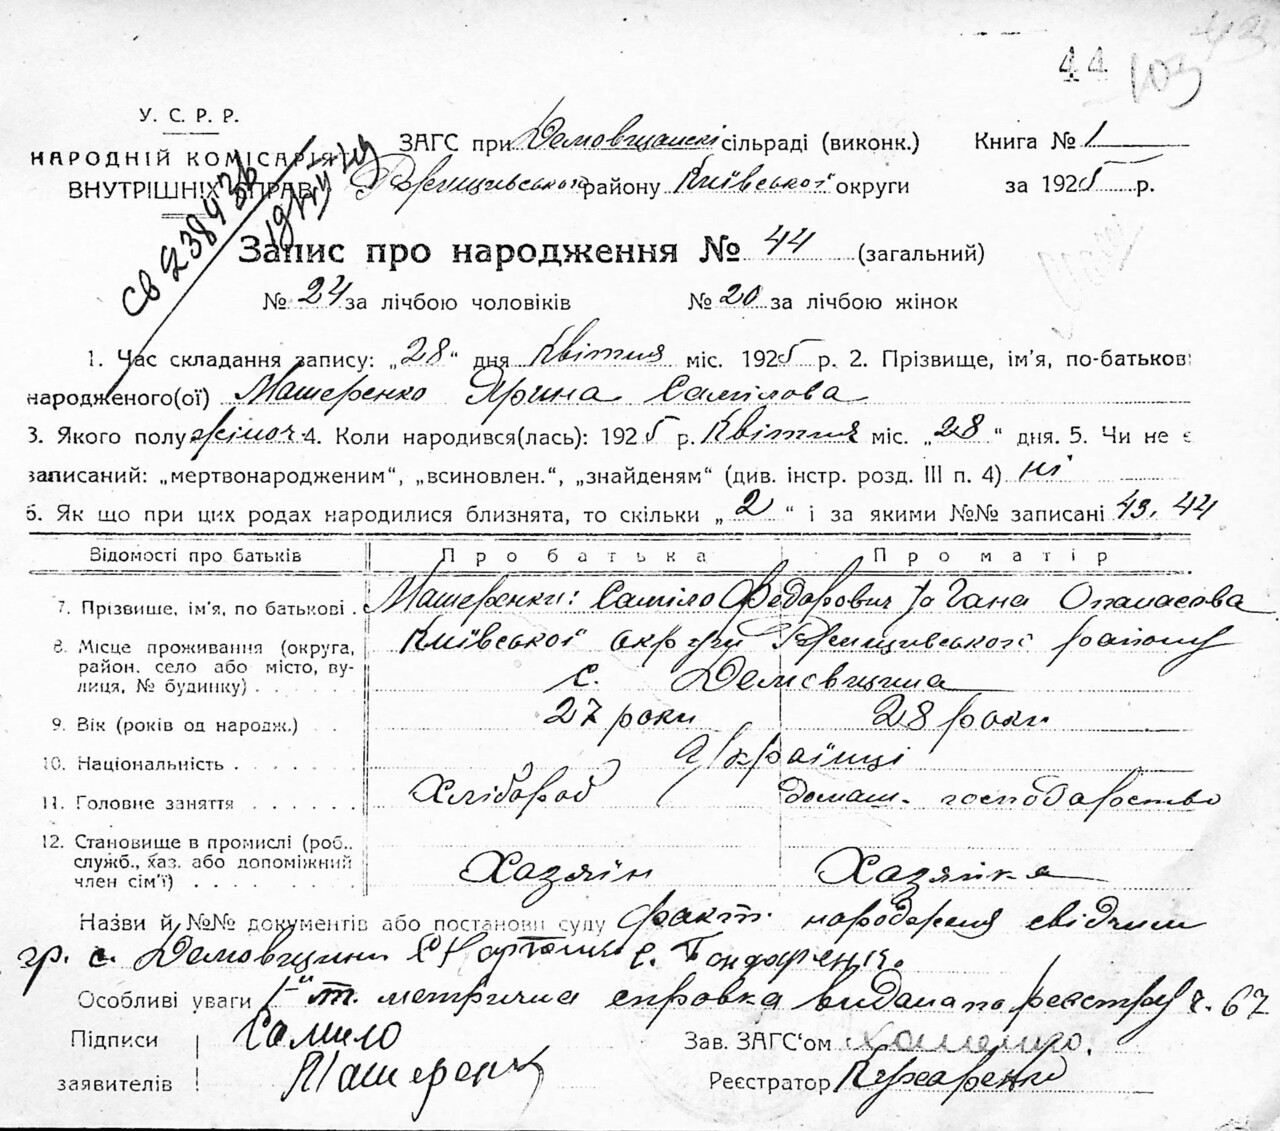 44 103 43
У. С. Р. Р.
НАРОДНІЙ КОМІСАРІЯТ
ВНУТРІШНІХ СПРАВ
ЗАГС при Демовщанскі сільраді (виконк.) Книга № 1
Ржищівського району Київської округи за 1925 р.
СВ 238436
Запис про народження № 44 (загальний)
№ 24 за лічбою чоловіків № 20 за лічбою жінок
1. Час складання запису: „28“ дня Квітня міс. 1925 р. 2. Прізвище, ім'я, по-батькові
народженого(ої) Машеренко Ярина Самілова
3. Якого полу жіноч. 4. Коли народився(лась): 1925 р. Квітня міс. „28“ дня. 5. Чи не є
записаний: „мертвонародженим“, „всиновлен.“, „знайденям“ (див. інстр. розд. III п. 4) ні
6. Як що при цих родах народилися близнята, то скільки „2“ і за якими №№ записані 43, 44
Відомості про батьків Про батька Про матір
7. Прізвише, ім'я, по батькові . Машеренки: Саміло Федорович та Гана Опанасова
8. Місце проживання (округа, Київської округи Ржищівського району
район, село або місто, ву- с. Демовщина
лиця, № будинку) . . . . .
9. Вік (років од народж.) . . 27 роки 28 роки
10. Національність . . . . . . Українці
11. Головне заняття . . . . . . Хлібороб домаш. господарство
12. Становище в промислі (роб.,
служб., хаз. або допоміжний Хазяїн Хазяйка
член сім'ї) . . . . . . . .
Назви й №№ документів або постанови суду факт. народженя свідчили
гр. с. Демовщини С. Бондаренк.
Особливі уваги метрична справка видана по реєстру ч. 67
Підписи Самило Зав. ЗАГС'ом
заявителів Машеренк Реєстратор